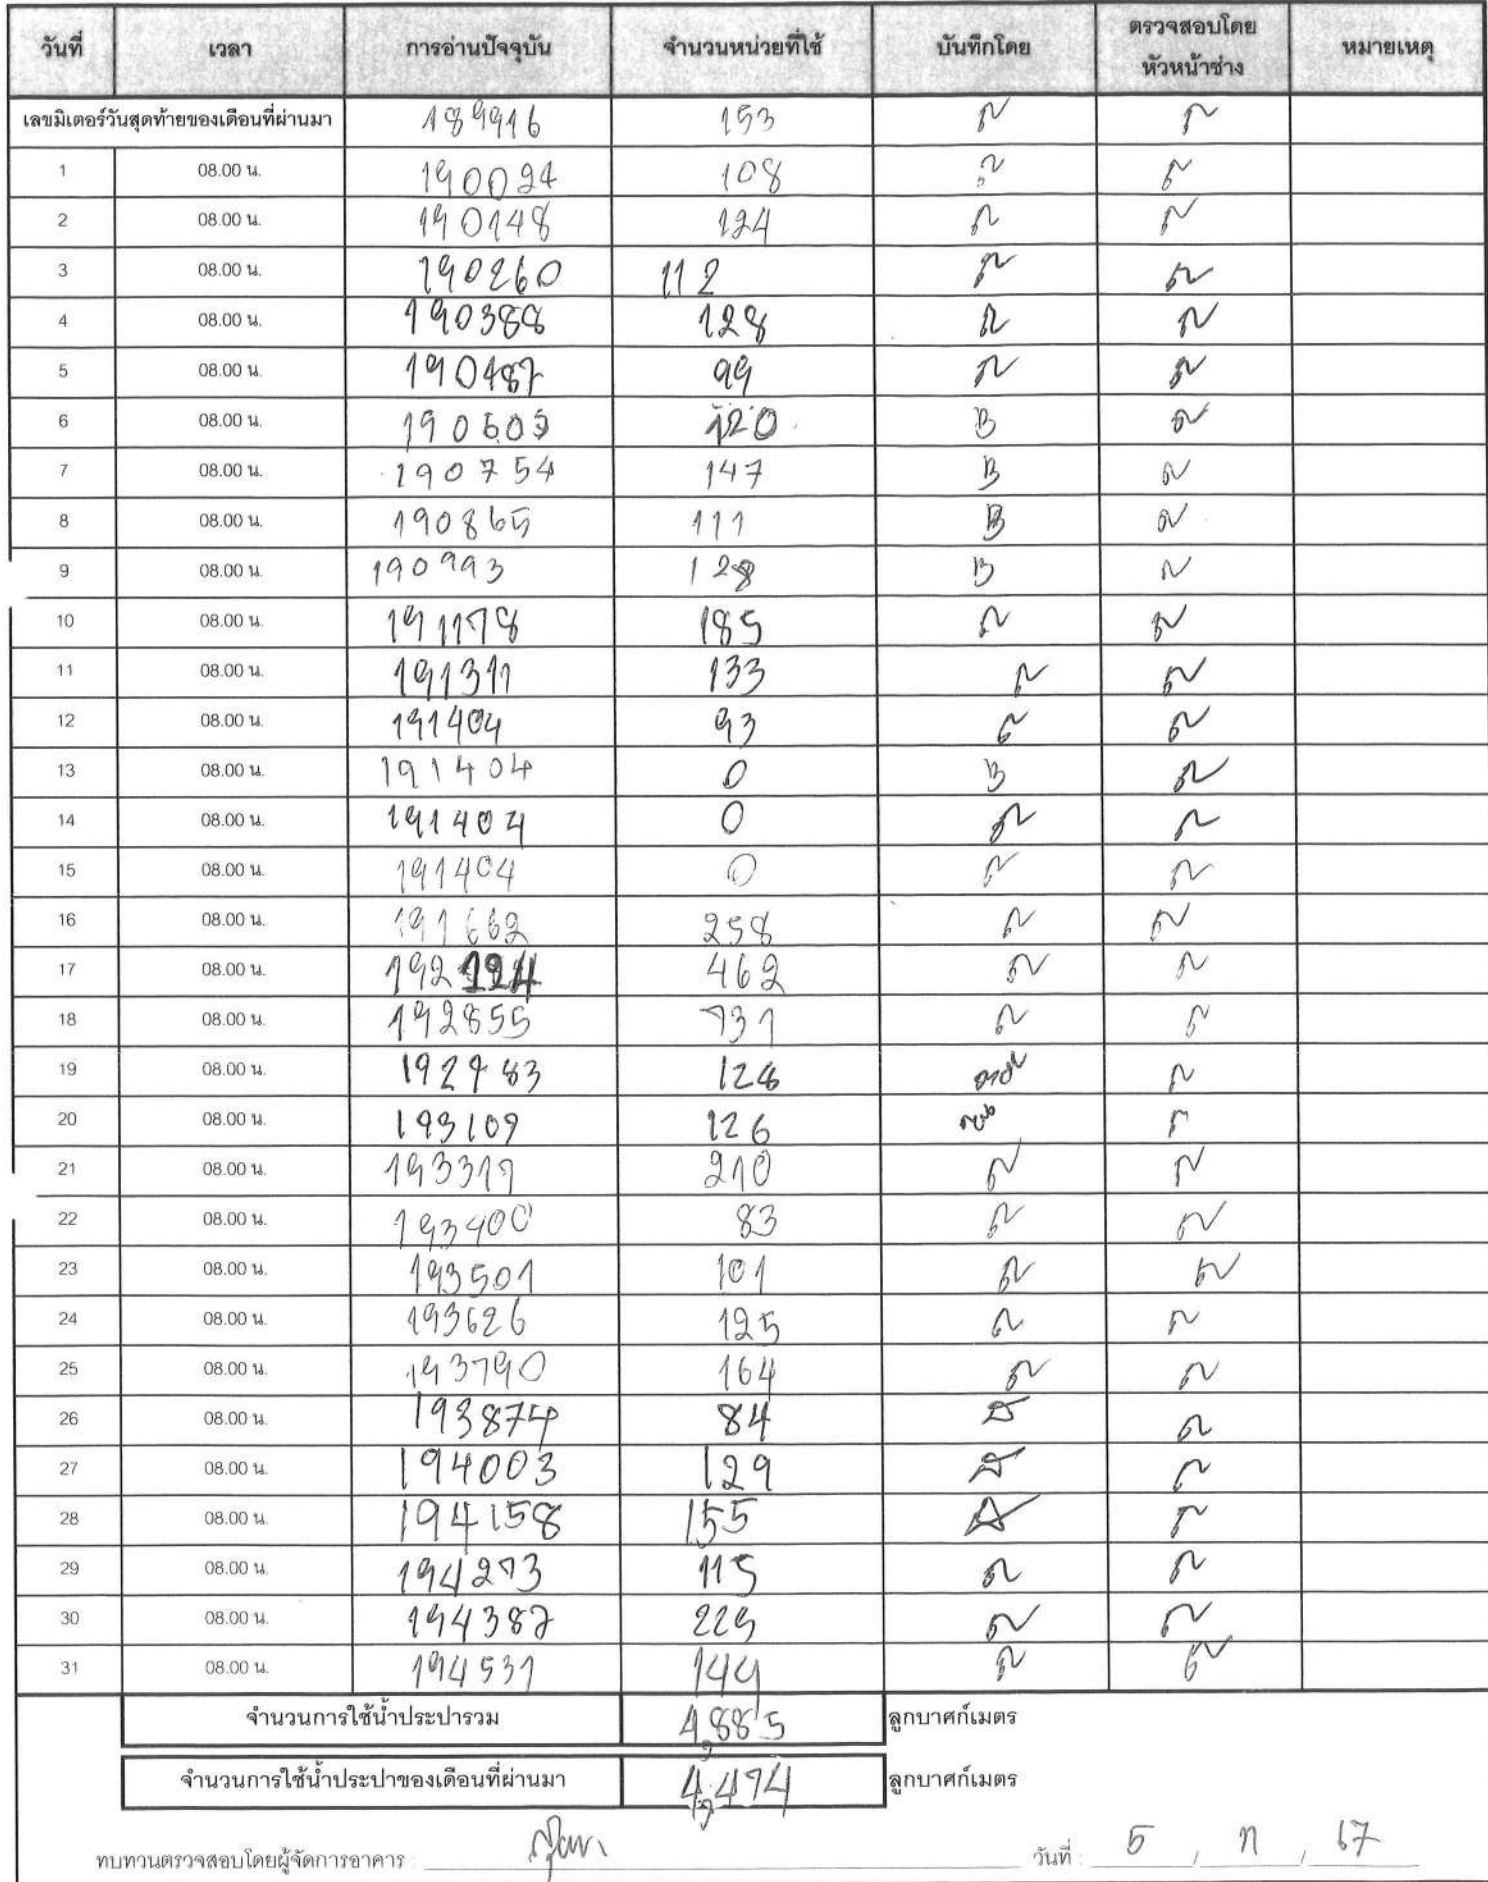 วันที่ เวลา การอ่านปัจจุบัน จำนวนหน่วยที่ใช้ บันทึกโดย ตรวจสอบโดย หัวหน้าช่าง หมายเหตุ
เลขมิเตอร์วันสุดท้ายของเดือนที่ผ่านมา 189916 153
1 08.00 น. 190024 108
2 08.00 น. 190148 124
3 08.00 น. 190260 112
4 08.00 น. 190388 128
5 08.00 น. 190487 99
6 08.00 น. 190605 120 B
7 08.00 น. 190754 147 B
8 08.00 น. 190865 111 B
9 08.00 น. 190993 128 B
10 08.00 น. 191178 185
11 08.00 น. 191311 133
12 08.00 น. 191404 93
13 08.00 น. 191404 0 B
14 08.00 น. 191404 0
15 08.00 น. 191404 0
16 08.00 น. 191662 258
17 08.00 น. 192124 462
18 08.00 น. 192855 731
19 08.00 น. 192983 128
20 08.00 น. 193109 126
21 08.00 น. 193319 210
22 08.00 น. 193400 83
23 08.00 น. 193501 101
24 08.00 น. 193626 125
25 08.00 น. 193790 164
26 08.00 น. 193874 84
27 08.00 น. 194003 129
28 08.00 น. 194158 155
29 08.00 น. 194273 115
30 08.00 น. 194387 229
31 08.00 น. 194531 144
จำนวนการใช้น้ำประปารวม 4,885 ลูกบาศก์เมตร
จำนวนการใช้น้ำประปาของเดือนที่ผ่านมา 4,474 ลูกบาศก์เมตร
ทบทวนตรวจสอบโดยผู้จัดการอาคาร : วันที่ : 5 / ก / 67